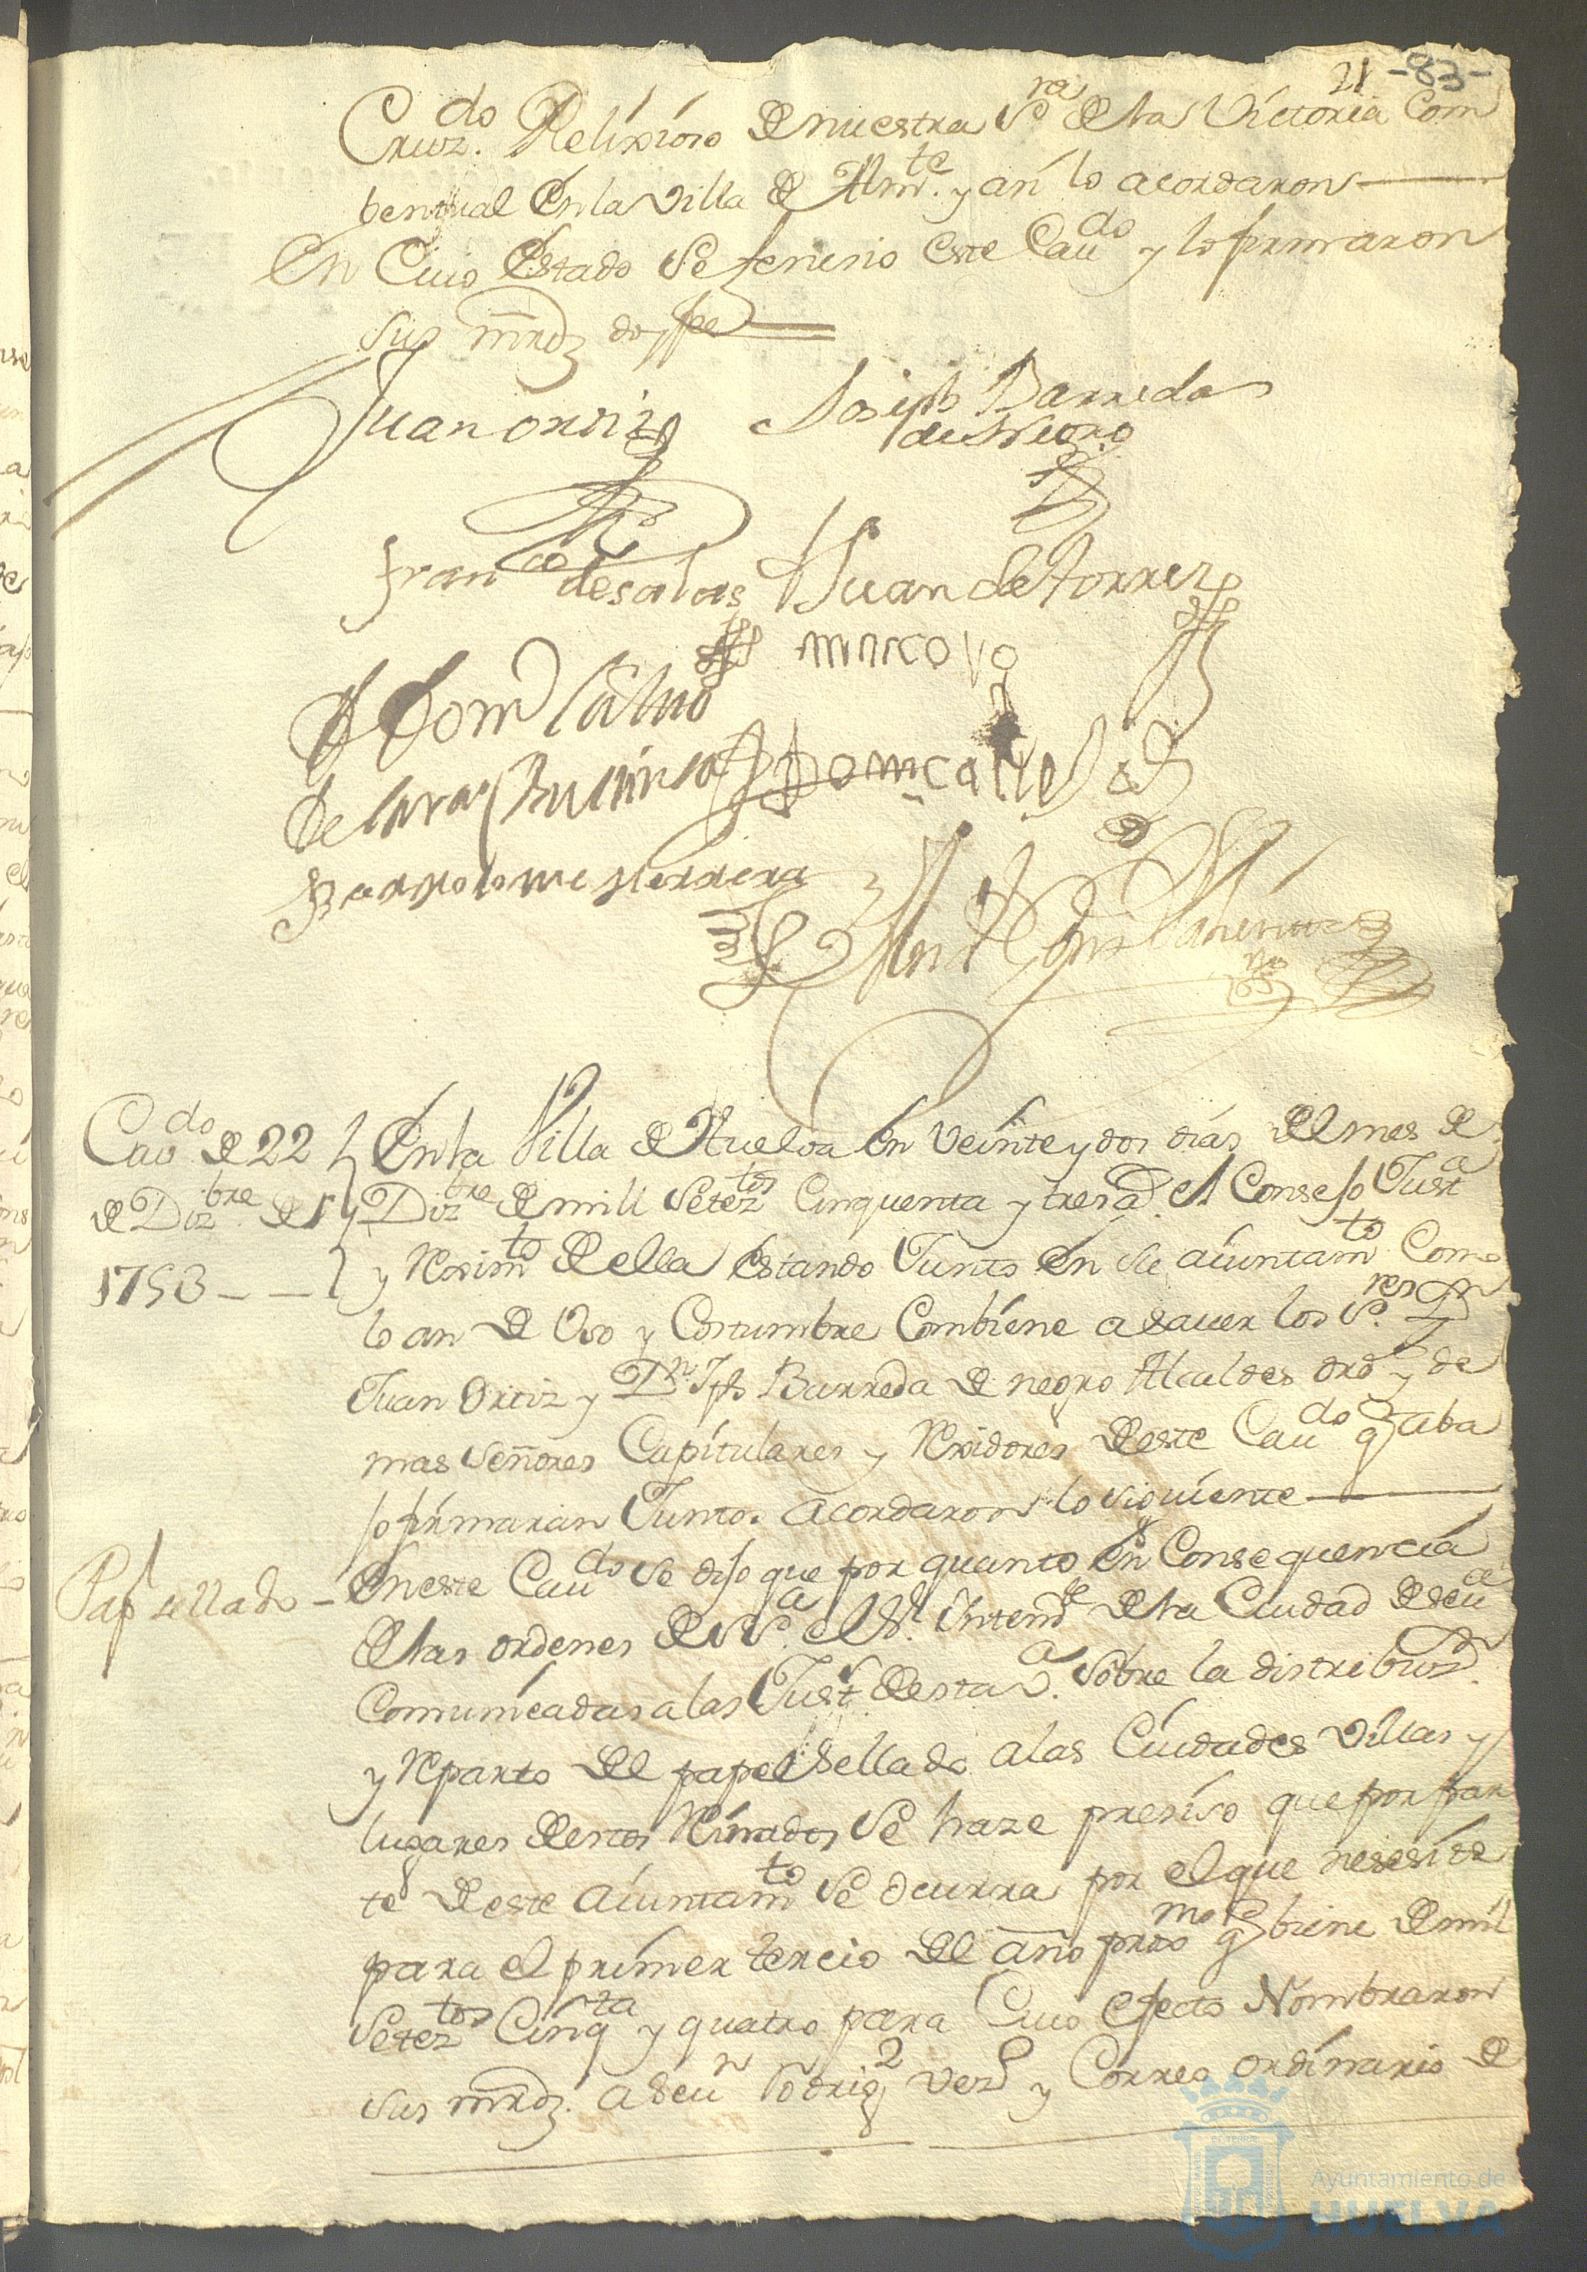 21 -83-
Cruz.do Relixioso de nuestra S.ra de la Victoria Com
bentual en la villa de Alm.te y asi lo acordaron
En Cuio Estado Se fenesio este Cau.do y lo firmaron
sus mrdz. doy fe
Juan ortiz Joseph Barreda
de Negro
Fran.co de salas Juan de torres
marco
D Dom Calvo
de lara
Dom calle
Bartolome Herrera
Cau.do de 22
de Diz.bre de
1753
En la Villa de Huelva en veinte y dos dias del mes de
Diz.bre de mill Setez.tos Cinquenta y tres a.s el Consejo Just.a
y Rexim.to de ella Estando Junto en su aiuntam.to Como
lo an de Uso y Costumbre Combiene a sauer los S.res Dn
Juan Ortiz y Dn. Jph Barreda de negro Alcaldes ord.s y de
mas Señores Capitulares y Rexidores de este Cau.do q aba
jo firmaran Juntos acordaron lo siguiente
Pap sellado
En este Cau.do se dijo que por quanto en Consequencia
de las ordenes de el S.r Intend.te de la Ciudad de seu.a
Comunicadas a las Just.s de esta v.a sobre la distribuz.n
y Reparto del papel Sellado a las Ciudades villas y
lugares de estos Reinados Se haze presiso que por par
te de este aiuntam.to se ocurra por el que nesesite
para el primer tercio del año prox.mo q biene de mil
Setez.tos Cinq.ta y quatro para Cuio efecto Nombraron
sus mrdz. a Seu.n Rodrig.z vez.o y Correo ordinario de
Ayuntamiento de
HUELVA